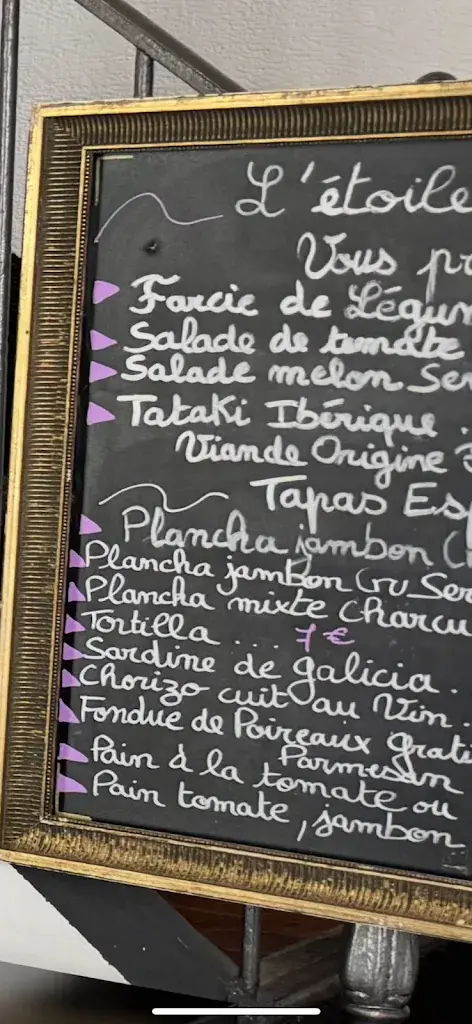 L'étoile
Vous pr
Farcie de Légum
Salade de tomate
Salade melon Ser
Tataki Ibérique .
Viande Origine
Tapas Esp
Plancha jambon
Plancha jambon Cru Ser
Plancha mixte Charcu
Tortilla ... 7€
Sardine de galicia .
Chorizo cuit au Vin .
Fondue de Poireaux grati
Parmesan
Pain à la tomate ou
Pain tomate, jambon